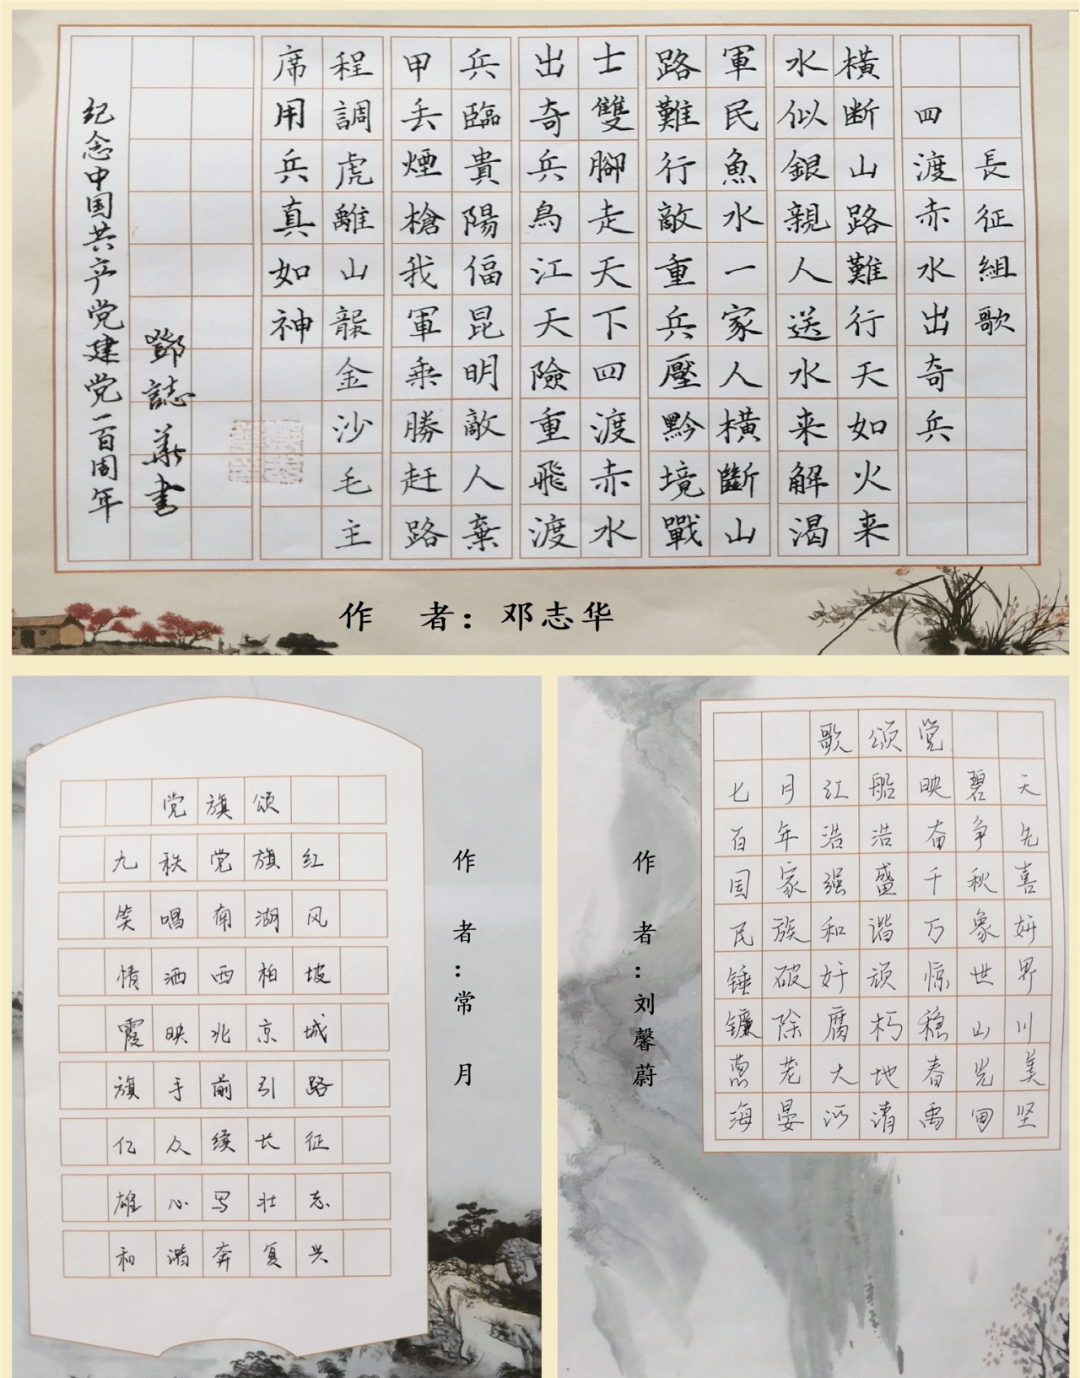 長征組歌
四渡赤水出奇兵
横断山路難行天如火来
水似銀親人送水来解渴
軍民魚水一家人横斷山
路難行敵重兵壓黔境戰
士雙腳走天下四渡赤水
出奇兵鳥江天險重飛渡
兵臨貴陽偪昆明敵人棄
甲丢煙槍我軍乘勝赶路
程調虎離山襲金沙毛主
席用兵真如神
鄧誌華書
纪念中国共产党建党一百周年
作 者：邓志华
党旗颂
九秩党旗红
笑唱南湖风
情洒西柏坡
霞映北京城
旗手前引路
亿众续长征
雄心写壮志
和谐奔复兴
作 者：常 月
歌颂党
七月红船映碧天
百年浩浩奋争先
国家强盛千秋喜
民族和谐万象妍
锤破奸顽惊世界
镰除腐朽稳山川
葱茏大地春光美
海晏河清禹甸坚
作 者：刘馨蔚